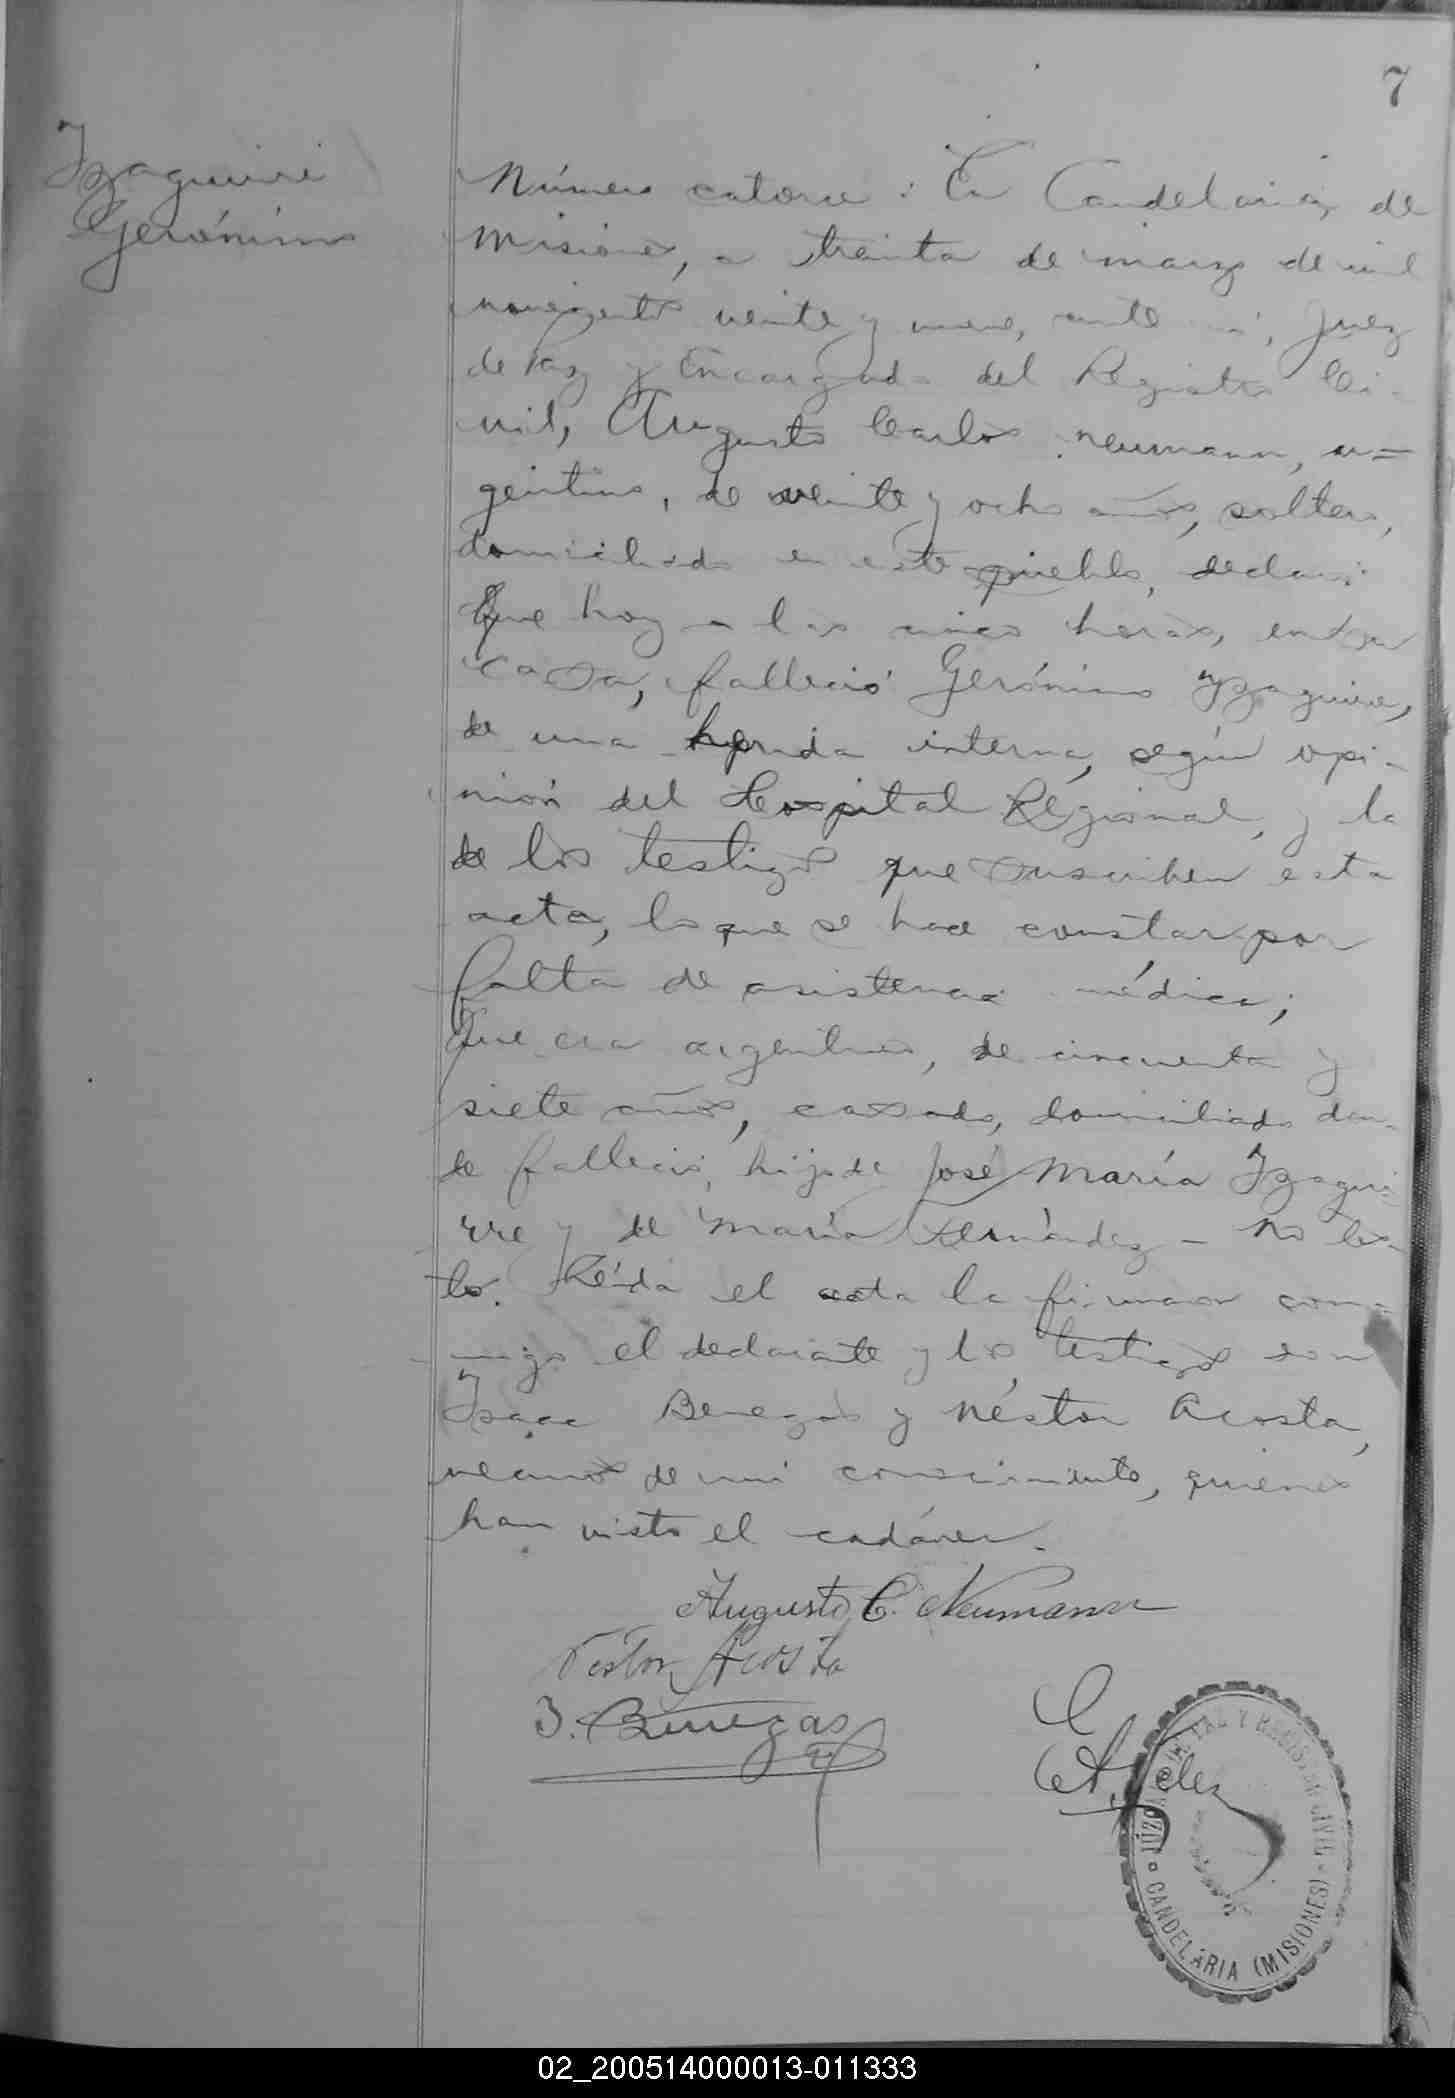 7
Izaguirre
Gerónimo
Número catorce: En Candelaria, de
Misiones, a treinta de marzo de mil
novecientos veinte y nueve, ante mí, Juez
de Paz y Encargado del Registro Ci-
vil, Augusto Carlos Neumann, ar=
gentino, de veinte y ocho años, soltero,
domiciliado en este pueblo, declaró:
Que hoy a las cinco horas, en su
casa, falleció Gerónimo Yzaguirre,
de una herida interna, según opi-
nión del Hospital Regional, y la
de los testigos que suscriben esta
acta, lo que se hace constar por
falta de asistencia médica;
Que era argentino, de cincuenta y
siete años, casado, domiciliado don-
de falleció, hijo de José María Izagui-
rre y de María Fernández – No tes-
tó. Leída el acta la firmaron con-
migo el declarante y los testigos don
Isaac Benegas y Néstor Acosta,
vecinos de mi conocimiento, quienes
han visto el cadáver.
Augusto C. Neumann
Néstor Acosta
I. Benegas
JUZGADO DE PAZ Y REGISTRO CIVIL
CANDELARIA (MISIONES)
02_200514000013-011333